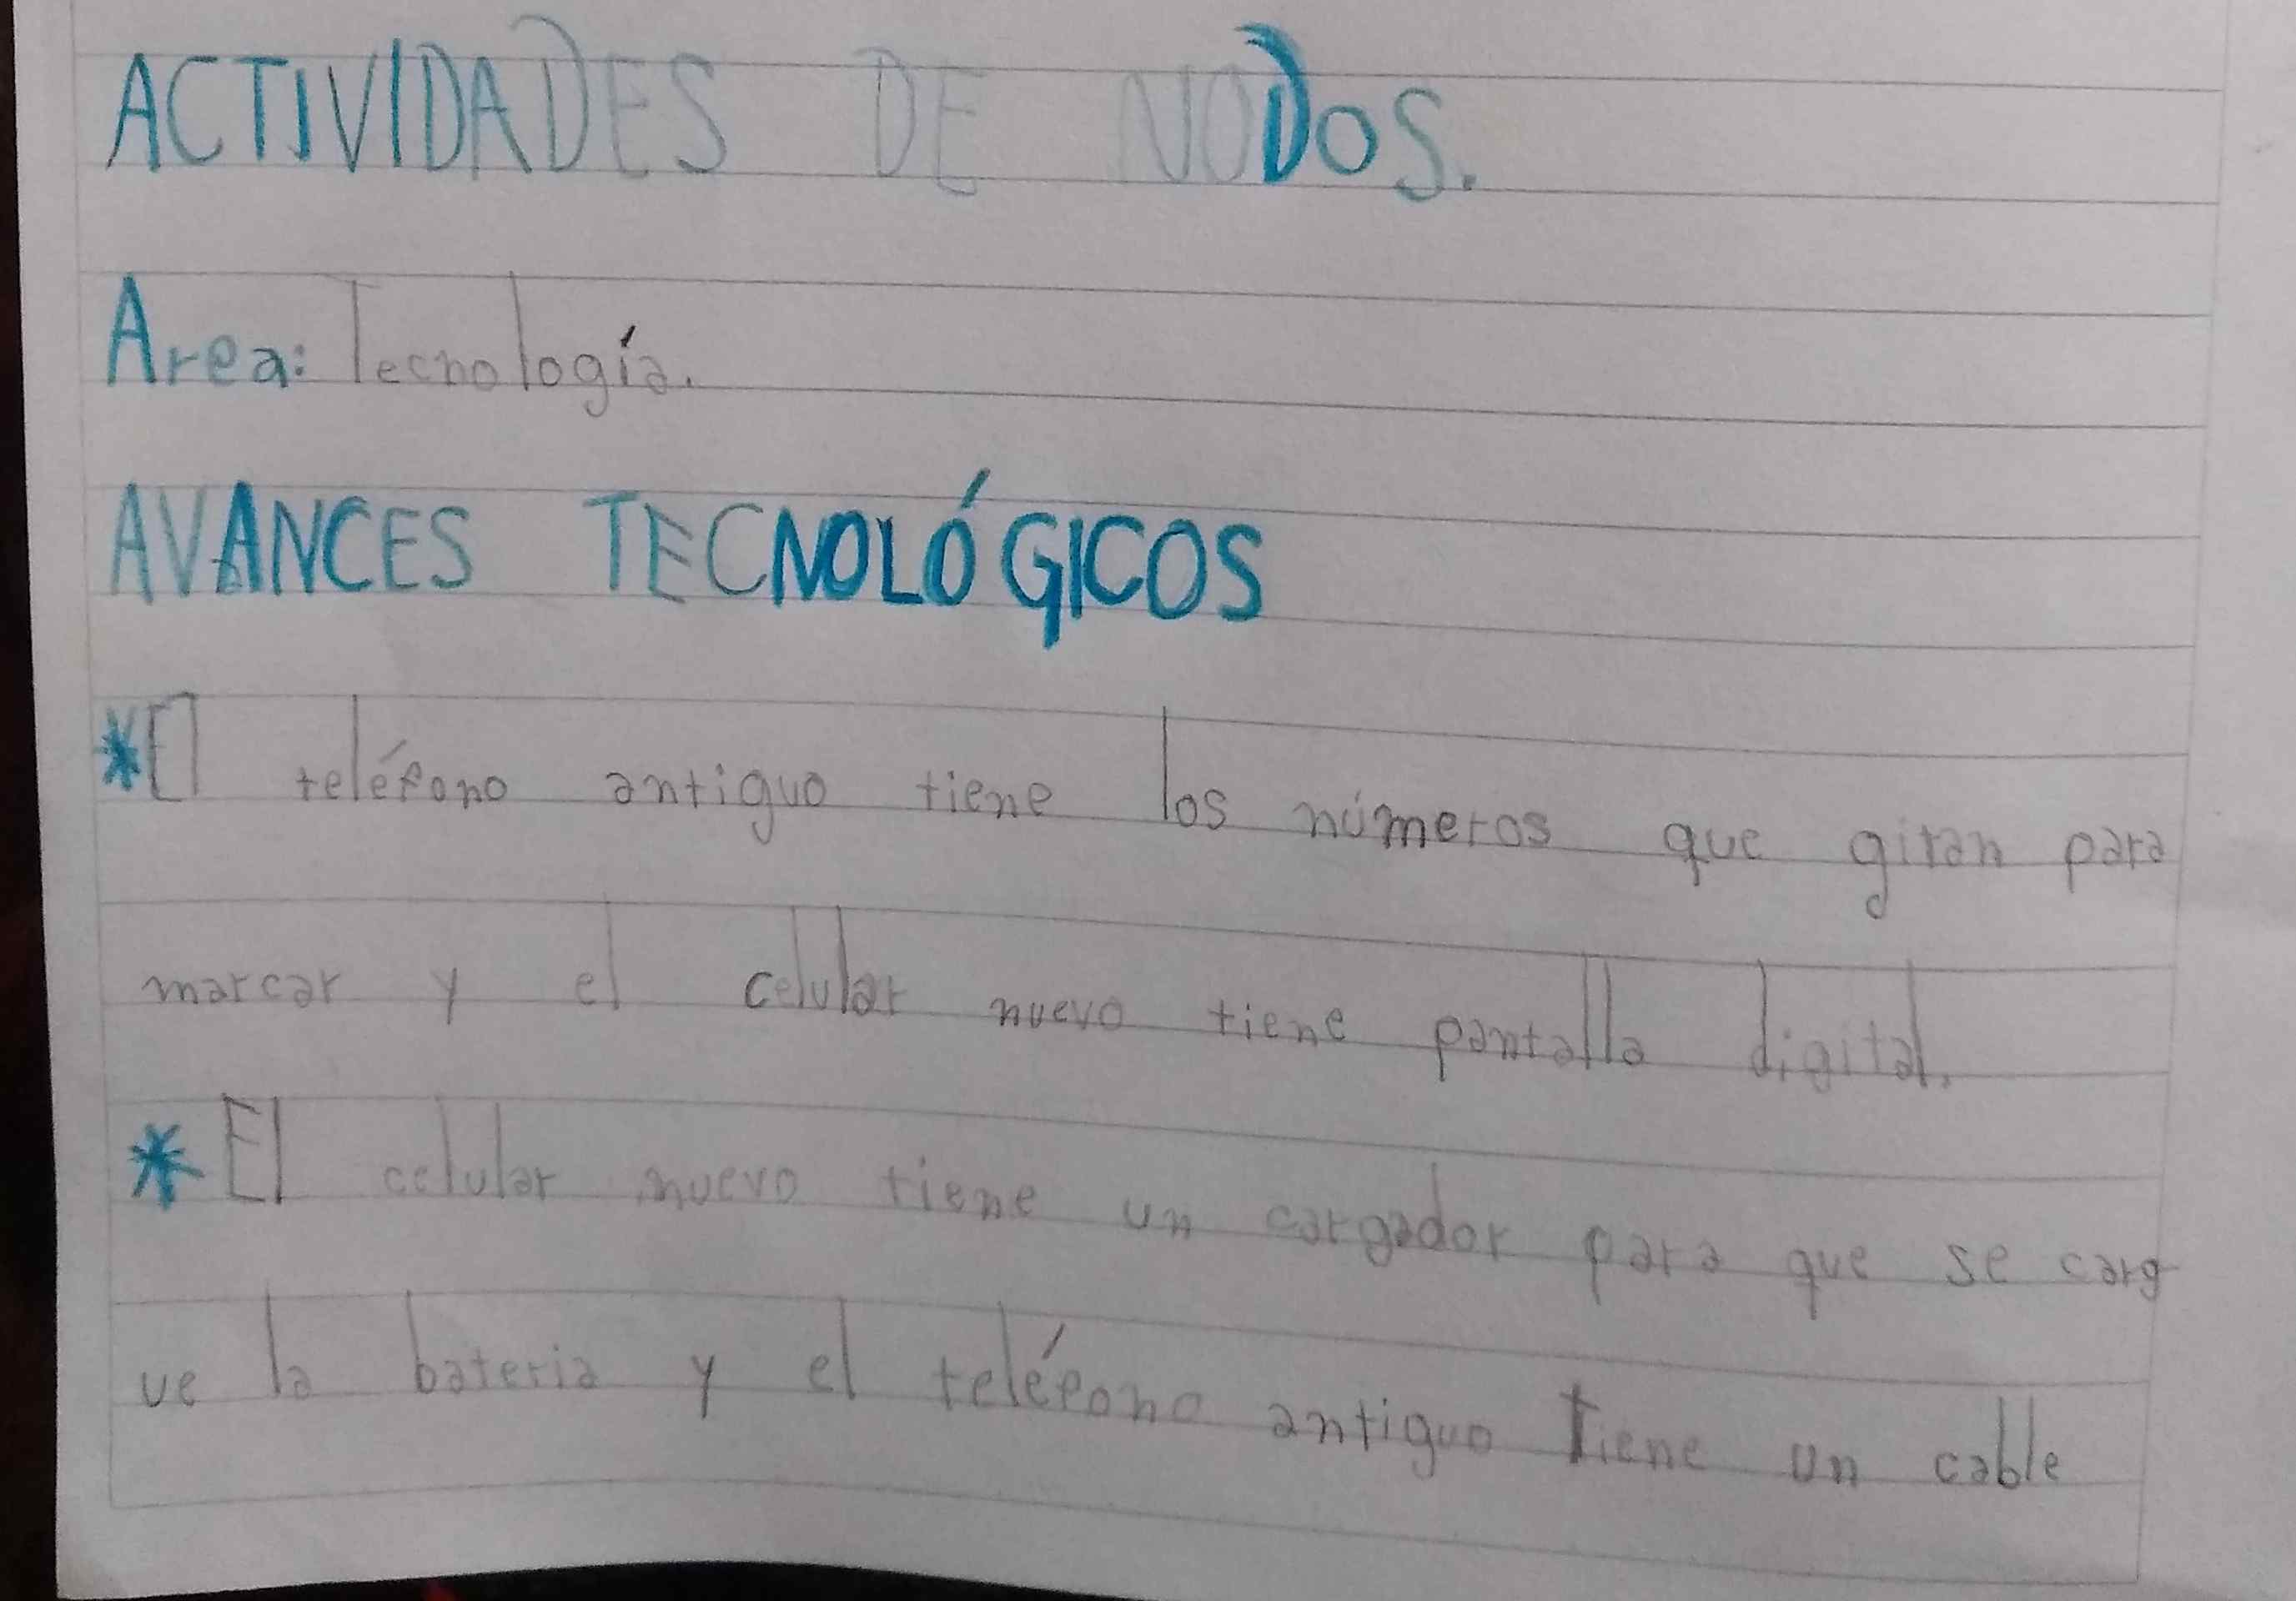 ACTIVIDADES DE NODOS.
Area: Tecnología.
AVANCES TECNOLÓGICOS
*El teléfono antiguo tiene los números que giran para
marcar y el celular nuevo tiene pantalla digital.
* El celular nuevo tiene un cargador para que se carg
ue la bateria y el teléfono antiguo tiene un cable